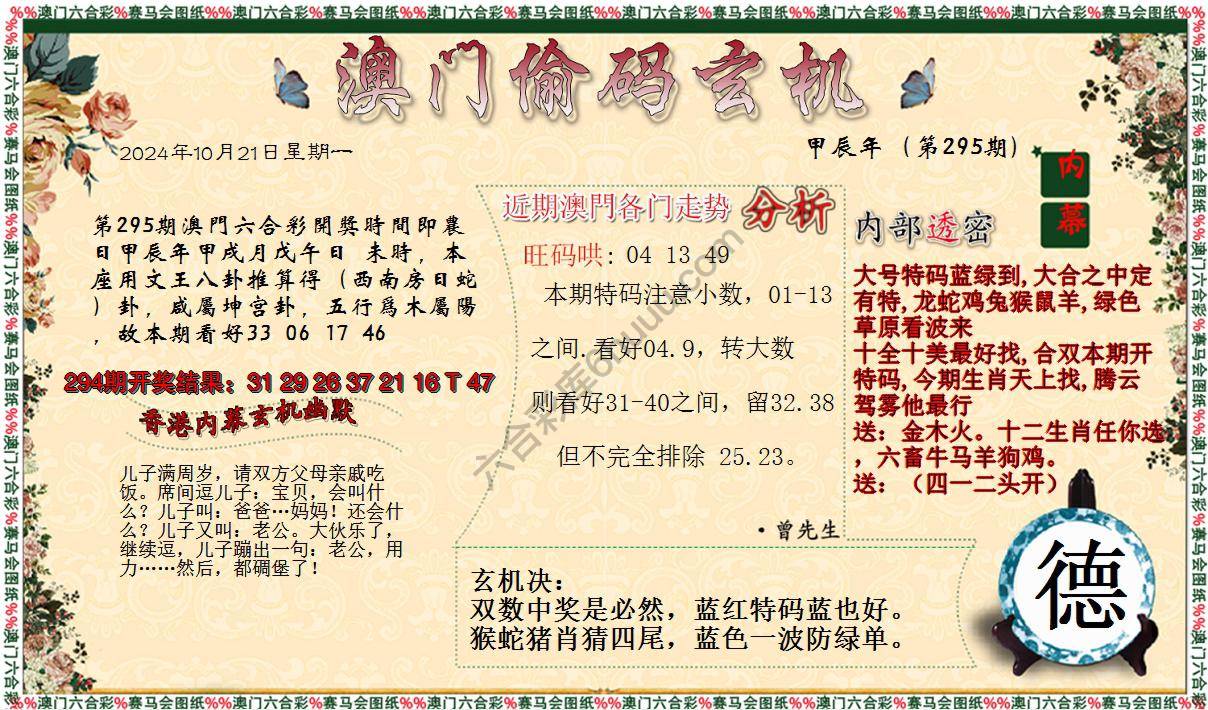 %%澳门六合彩%赛马会图纸%%澳门六合彩%赛马会图纸%%澳门六合彩%赛马会图纸%%澳门六合彩%赛马会图纸%%澳门六合彩%赛马会图纸%%澳门六合彩%赛马会图纸%%
澳门偷码玄机
2024年10月21日星期一
甲辰年（第295期）
内幕
第295期澳門六合彩開獎時間即農
日甲辰年甲戌月戊午日 未時，本
座用文王八卦推算得（西南房日蛇
）卦，咸屬坤宫卦，五行爲木屬陽
，故本期看好33 06 17 46
294期开奖结果：31 29 26 37 21 16 T 47
香港内幕玄机幽默
儿子满周岁，请双方父母亲戚吃
饭。席间逗儿子：宝贝，会叫什
么？儿子叫：爸爸…妈妈！还会什
么？儿子又叫：老公。大伙乐了，
继续逗，儿子蹦出一句：老公，用
力……然后，都碉堡了！
近期澳門各门走势 分析
旺码哄: 04 13 49
本期特码注意小数，01-13
之间.看好04.9，转大数
则看好31-40之间，留32.38
但不完全排除 25.23。
·曾先生
内部透密
大号特码蓝绿到,大合之中定
有特,龙蛇鸡兔猴鼠羊,绿色
草原看波来
十全十美最好找,合双本期开
特码,今期生肖天上找,腾云
驾雾他最行
送：金木火。十二生肖任你选
，六畜牛马羊狗鸡。
送：（四一二头开）
玄机决：
双数中奖是必然，蓝红特码蓝也好。
猴蛇猪肖猜四尾，蓝色一波防绿单。
德
%%澳门六合彩%赛马会图纸%%澳门六合彩%赛马会图纸%%澳门六合彩%赛马会图纸%%澳门六合彩%赛马会图纸%%澳门六合彩%赛马会图纸%%澳门六合彩%赛马会图纸%%